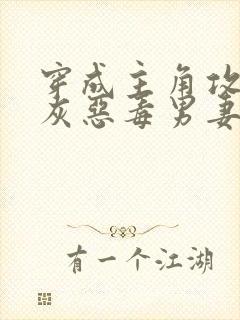 穿成主角攻
灰恶毒男妻
有一个江湖